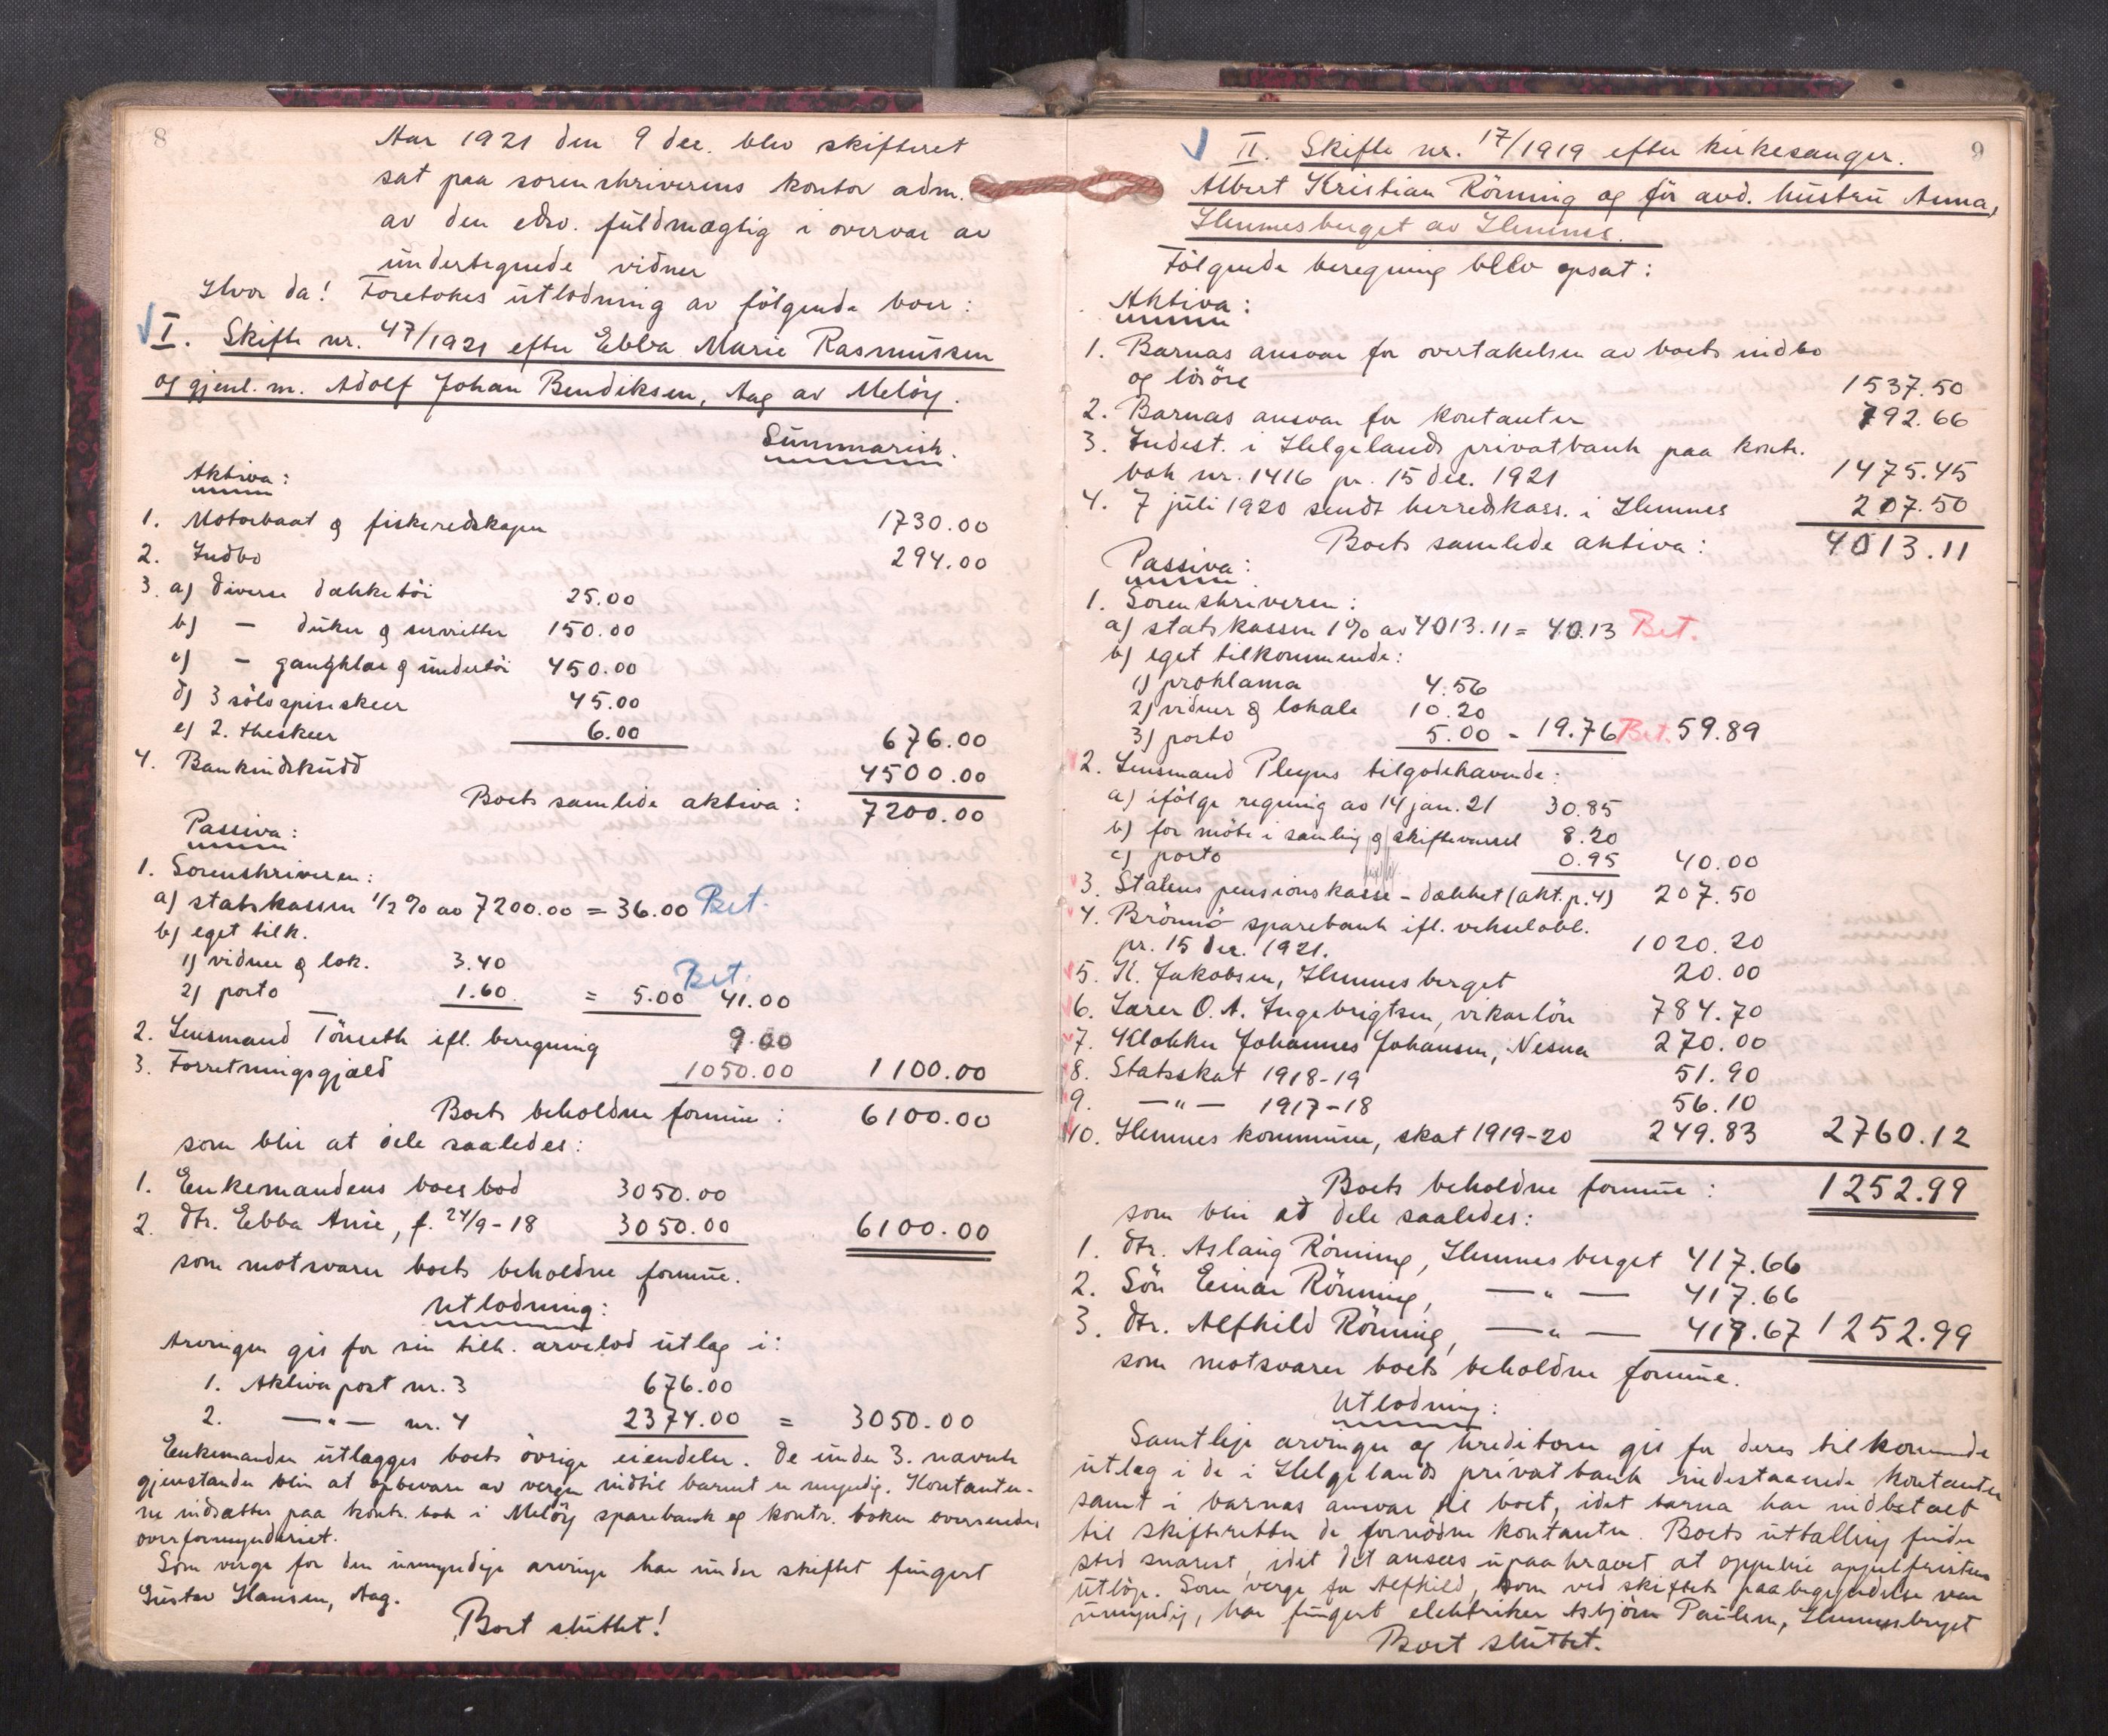 8
Aar 1921 den 9 dec. blev skifteret
sat paa sorenskriverens kontor adm.
av den edsv. fuldmægtig i overvær av
undertegnede vidner
Hvor da! Foretokes utlodning av følgende boer:
I. Skifte nr. 47/1921 efter Ebba Marie Rasmussen
og gjenl. m. Adolf Johan Bendiksen, Aag av Meløy.
Summarisk.
Aktiva:
1. Motorbaat & fiskeredskaper 1730.00
2. Indbo 294.00
3. a) diverse dækketøi 25.00
b) — duker & servietter 150.00
c) — gangklær & undertøi 450.00
d) 3 sølvspiseskeer 45.00
e) 2. theskeer 6.00 676.00
4. Bankindskudd 4500.00
Boets samlede aktiva: 7200.00
Passiva:
1. Sorenskriveren:
a) statskassen 1/2 % av 7200.00 = 36.00 Bet.
b) eget tilk.
1) vidner & lok. 3.40 Bet.
2) porto 1.60 = 5.00 41.00
2. Lensmand Tönseth ifl. beregning 9.00
3. Forretningsgjæld 1050.00 1100.00
Boets beholdne formue: 6100.00
som blir at dele saaledes:
1. Enkemandens boeslod 3050.00
2. dtr. Ebba Anie, f. 24/9-18 3050.00 6100.00
som motsvarer boets beholdne formue.
Utlodning:
Arvingen gis for sin tilk. arvelod utlæg i:
1. Aktiva post nr. 3 676.00
2. —"— nr. 4 2374.00 = 3050.00
Enkemanden utlægges boets övrige eiendeler. De under 3. nævnte
gjenstander blir at opbevare av vergen indtil barnet er myndig. Kontanter-
ne indsættes paa kontr. bok i Meløy sparebank og kontr. boken oversendes
overformynderiet.
Som verge for den umyndige arving har under skiftet fungert
Gustav Hansen, Aag.
Boet sluttet!
9
II. Skifte nr. 17/1919 efter kirkesanger
Albert Kristian Rönning og før avd. hustru Anna,
Hemnesberget av Hemnes.
Følgende beregning blev opsat:
Aktiva:
1. Barnas ansvar for overtakelsen av boets indbo
og løsøre 1537.50
2. Barnas ansvar for kontanter 792.66
3. Indest. i Helgelands privatbank paa kontr.
bok nr. 1416 pr. 15 dec. 1921 1475.45
4. 7 juli 1920 sendt herredskass. i Hemnes 207.50
Boets samlede aktiva: 4013.11
Passiva:
1. Sorenskriveren:
a) statskassen 1% av 4013.11 = 40.13 Bet.
b) eget tilkommende:
1) proklama 4.56
2) vidner & lokale 10.20
3) porto 5.00 - 19.76 Bet. 59.89
2. Lensmand Pleyns tilgodehavende:
a) ifölge regning av 14 jan. 21 30.85
b) for möte i samling & skiftevarsel 8.20
c) porto 0.95 40.00
3. Statens pensionskasse - dækket (akt. p. 4) 207.50
4. Brönnö sparebank ifl. vekselobl.
pr. 15 dec. 1921. 1020.20
5. K. Jakobsen, Hemnesberget 20.00
6. Lærer O. A. Ingebrigtsen, vikarlön 784.70
7. Klokker Johannes Johansen, Nesna 270.00
8. Statsskat 1918-19 51.90
9. —"— 1917-18 56.10
10. Hemnes kommune, skat 1919-20 249.83 2760.12
Boets beholdne formue: 1252.99
som blir at dele saaledes:
1. dtr. Aslaug Rönning, Hemnesberget 417.66
2. Sön Einar Rönning, —"— 417.66
3. dtr. Alfhild Rönning, —"— 417.67 1252.99
som motsvarer boets beholdne formue.
Utlodning:
Samtlige arvinger og kreditorer gis for deres tilkommende
utlæg i de i Helgelands privatbank indestaaende kontanter
samt i barnas ansvar til boet, idet barna har indbetalt
til skifteretten de fornödne kontanter. Boets uttælling finder
sted snarest, idet det ansees upaakrævet at oppebie appelfristens
utlöp. Som verge for Alfhild, som ved skiftets paabegyndelse var
umyndig, har fungert elektriker Asbjörn Paulsen, Hemnesberget
Boet sluttet.